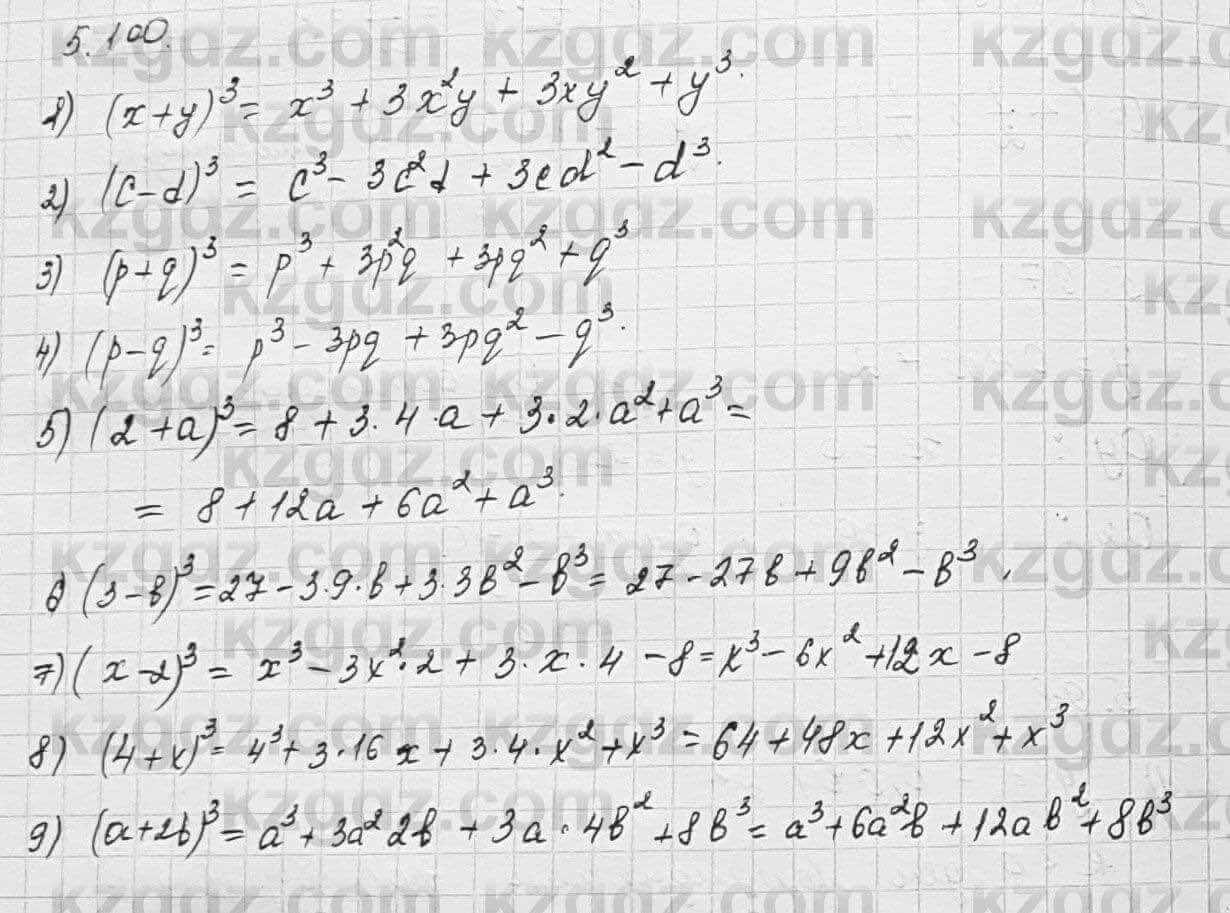 5.100.
1) (x+y)³ = x³ + 3x²y + 3xy² + y³.
2) (c-d)³ = c³ - 3c²d + 3cd² - d³.
3) (p+q)³ = p³ + 3p²q + 3pq² + q³
4) (p-q)³ = p³ - 3pq + 3pq² - q³.
5) (2+a)³ = 8 + 3·4·a + 3·2·a² + a³ =
= 8 + 12a + 6a² + a³.
6) (3-в)³ = 27 - 3·9·в + 3·3в² - в³ = 27 - 27в + 9в² - в³.
7) (x-2)³ = x³ - 3x²·2 + 3·x·4 - 8 = x³ - 6x² + 12x - 8
8) (4+x)³ = 4³ + 3·16x + 3·4·x² + x³ = 64 + 48x + 12x² + x³
9) (a+2b)³ = a³ + 3a²2в + 3a·4в² + 8в³ = a³ + 6a²в + 12aв² + 8в³
kzgdz.com